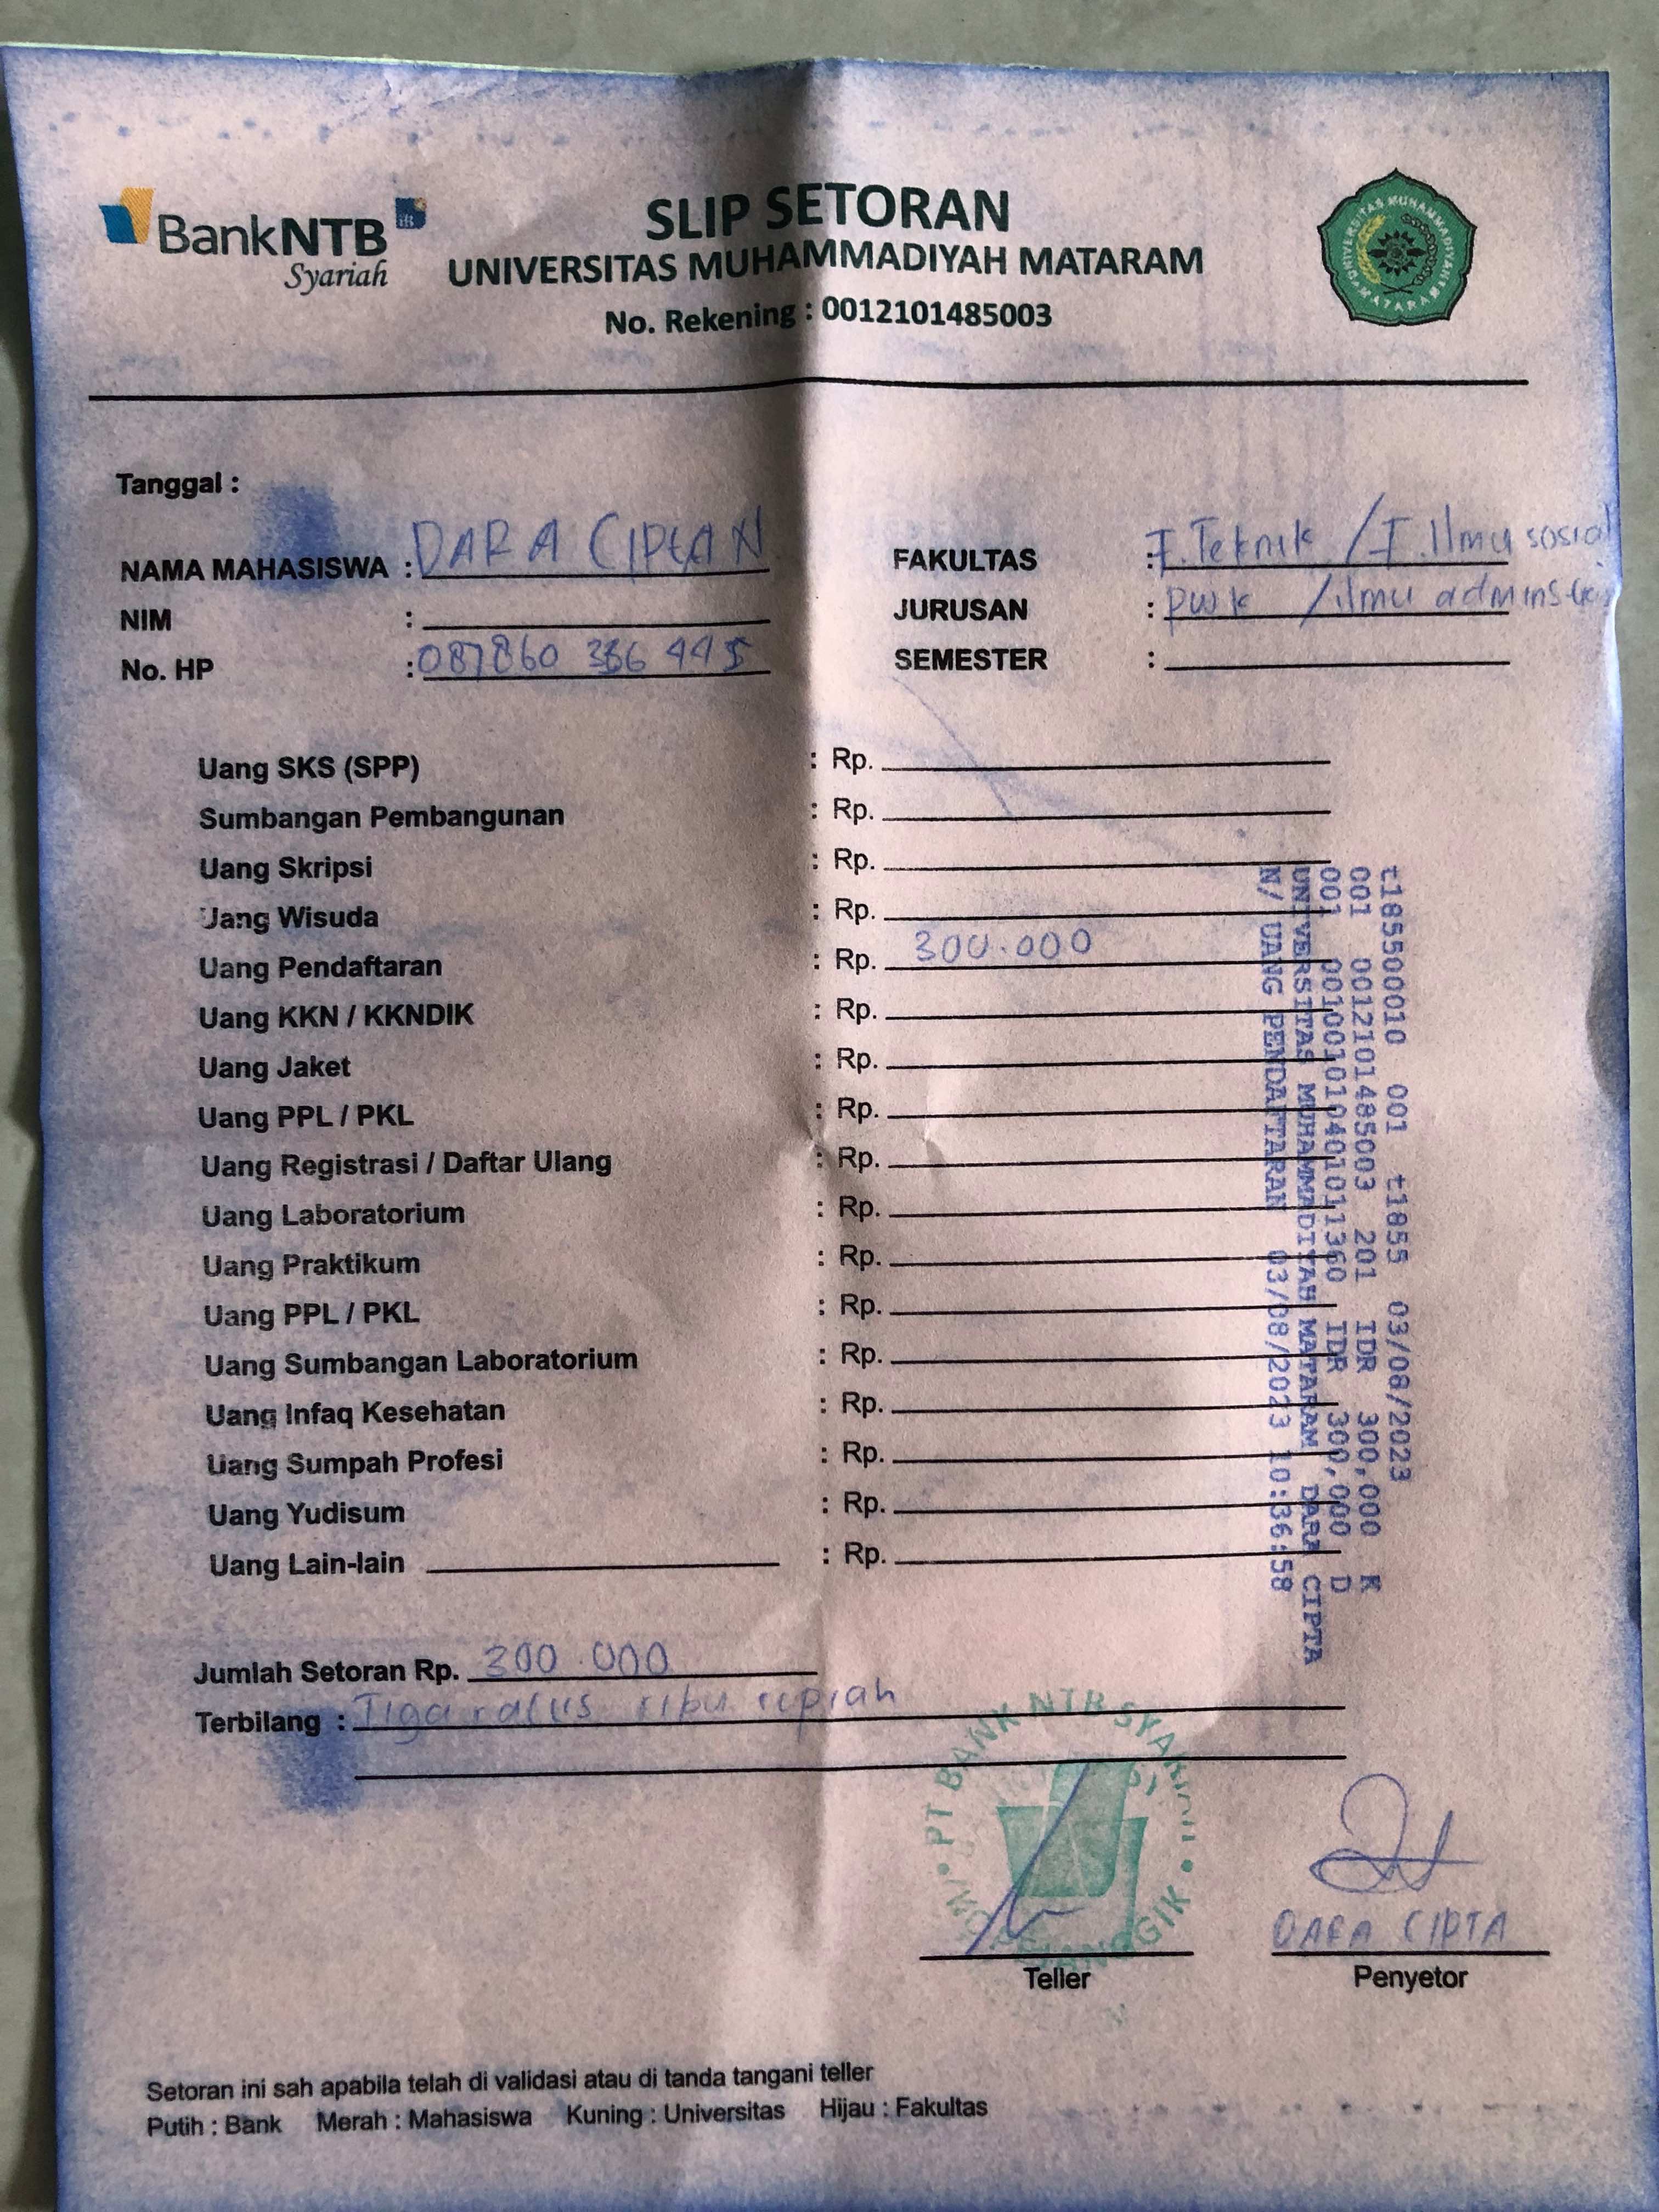 BankNTB
Syariah
SLIP SETORAN
UNIVERSITAS MUHAMMADIYAH MATARAM
No. Rekening : 0012101485003
UNIVERSITAS MUHAMMADIYAH MATARAM
Tanggal :
NAMA MAHASISWA : DARA CIPTAN
FAKULTAS : F. Teknik / F. Ilmu sosial
NIM :
JURUSAN : PWK / ilmu
No. HP : 087860 336 445
SEMESTER :
Uang SKS (SPP) : Rp.
Sumbangan Pembangunan : Rp.
Uang Skripsi : Rp.
Uang Wisuda : Rp.
Uang Pendaftaran : Rp. 300.000
Uang KKN / KKNDIK : Rp.
Uang Jaket : Rp.
Uang PPL / PKL : Rp.
Uang Registrasi / Daftar Ulang : Rp.
Uang Laboratorium : Rp.
Uang Praktikum : Rp.
Uang PPL / PKL : Rp.
Uang Sumbangan Laboratorium : Rp.
Uang Infaq Kesehatan : Rp.
Uang Sumpah Profesi : Rp.
Uang Yudisum : Rp.
Uang Lain-lain : Rp.
t185500010 001 t1855 03/08/2023
001 0012101485003 201 IDR 300,000 K
001 001001010401011360 IDR 300,000 D
UNIVERSITAS MUHAMMADIYAH MATARAM DARA CIPTA
N/ UANG PENDAFTARAN 03/08/2023 10:36:58
Jumlah Setoran Rp. 300.000
Terbilang : Tiga ratus ribu rupiah
PT BANK NTB SYARIAH
Teller
DARA CIPTA
Penyetor
Setoran ini sah apabila telah di validasi atau di tanda tangani teller
Putih : Bank Merah : Mahasiswa Kuning : Universitas Hijau : Fakultas